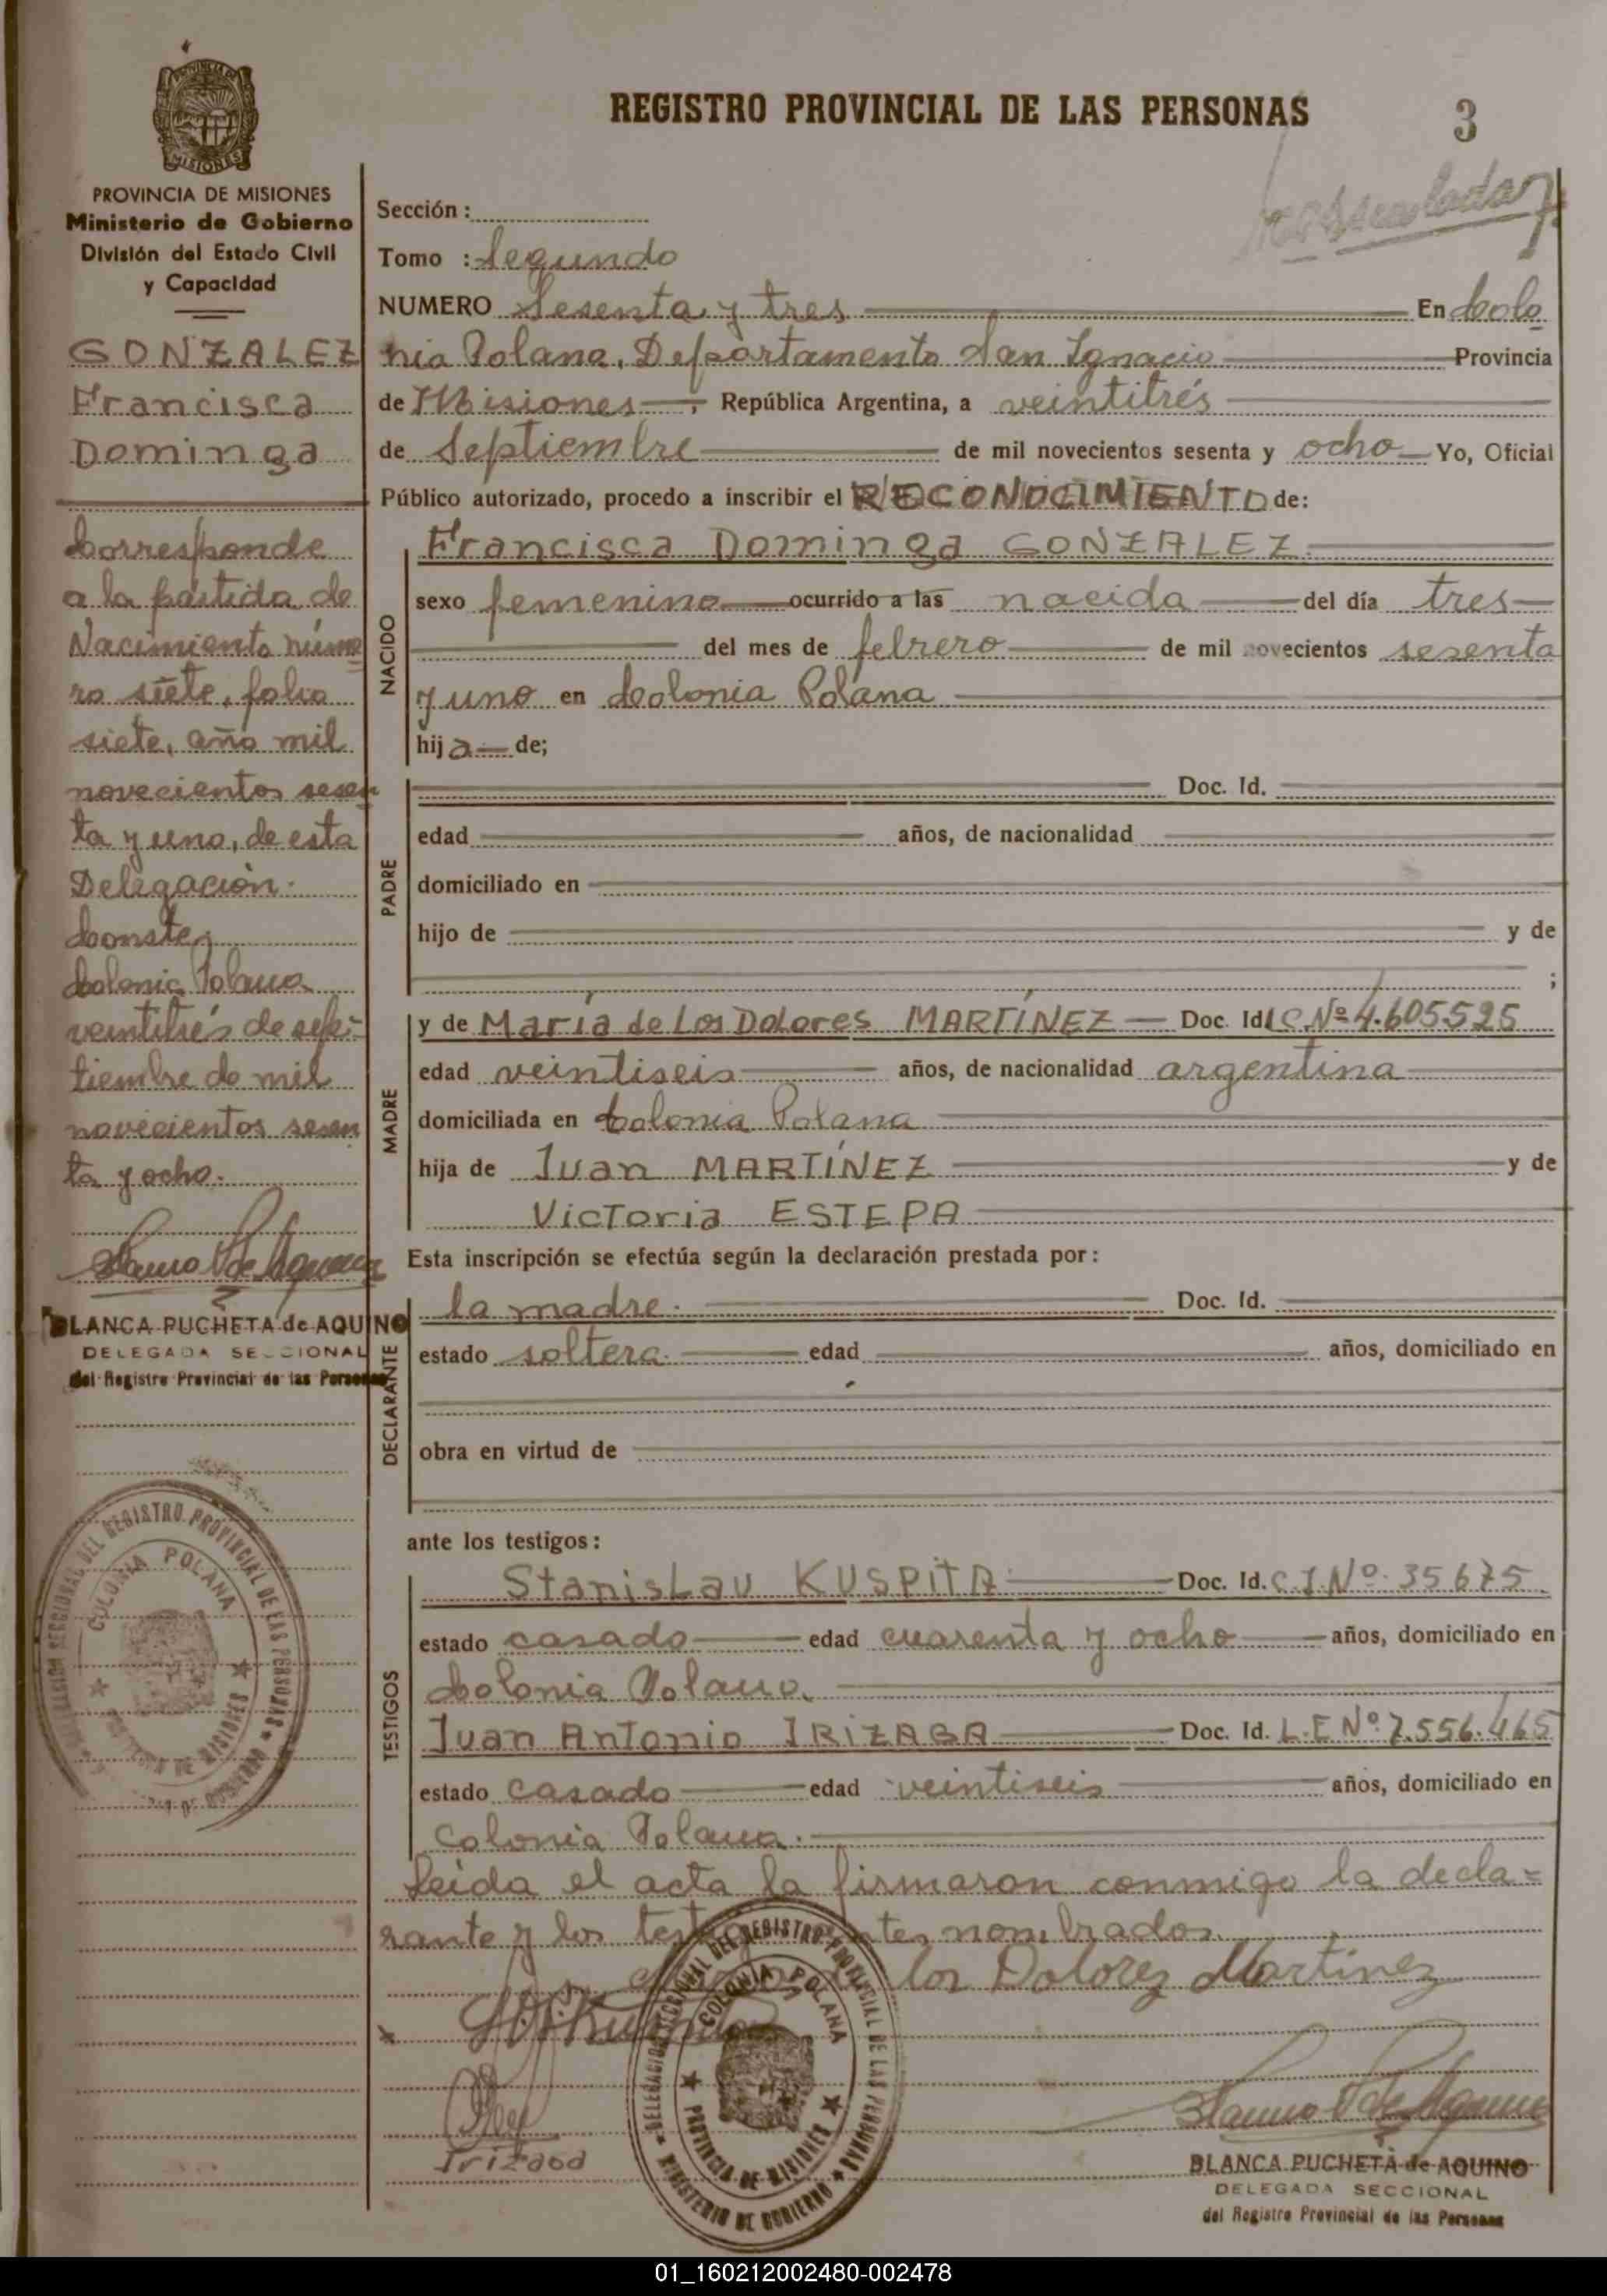 REGISTRO PROVINCIAL DE LAS PERSONAS
3
PROVINCIA DE
MISIONES
PROVINCIA DE MISIONES
Ministerio de Gobierno
División del Estado Civil
y Capacidad
GONZALEZ
Francisca
Dominga
Corresponde
a la partida de
Nacimiento núme
ro siete, folio
siete, año mil
novecientos sesen
ta y uno, de esta
Delegación.
Conste.
Colonia Polana
veintitrés de sep-
tiembre de mil
novecientos sesen
ta y ocho.
BLANCA PUCHETA de AQUINO
DELEGADA SECCIONAL
del Registro Provincial de las Personas
DELEGACION SECCIONAL DEL REGISTRO PROVINCIAL DE LAS PERSONAS
COLONIA POLANA
PROVINCIA DE MISIONES
Sección :
Tomo : Segundo
NUMERO Sesenta y tres En Colo
nia Polana, Departamento San Ignacio Provincia
de Misiones, República Argentina, a veintitrés
de Septiembre de mil novecientos sesenta y ocho Yo, Oficial
Público autorizado, procedo a inscribir el RECONOCIMIENTO de:
NACIDO
Francisca Dominga GONZALEZ
sexo femenino ocurrido a las nacida del día tres
del mes de febrero de mil novecientos sesenta
y uno en Colonia Polana
hija de;
PADRE
Doc. Id.
edad años, de nacionalidad
domiciliado en
hijo de y de
;
MADRE
y de María de Los Dolores MARTÍNEZ Doc. Id. L C Nº 4.605525
edad veintiseis años, de nacionalidad argentina
domiciliada en Colonia Polana
hija de Juan MARTÍNEZ y de
Victoria ESTEPA
Esta inscripción se efectúa según la declaración prestada por :
DECLARANTE
la madre. Doc. Id.
estado soltera. edad años, domiciliado en
obra en virtud de
ante los testigos :
TESTIGOS
Stanislau KUSPITA Doc. Id. C.I. Nº 35675
estado casado edad cuarenta y ocho años, domiciliado en
Colonia Polana.
Juan Antonio IRIZAGA Doc. Id. L.E Nº 7.556.465
estado casado edad veintiseis años, domiciliado en
Colonia Polana.
Leida el acta la firmaron conmigo la decla-
rante y los testigos antes nombrados.
los Dolores Martinez
DELEGACION SECCIONAL DEL REGISTRO PROVINCIAL DE LAS PERSONAS
COLONIA POLANA
PROVINCIA DE MISIONES
MINISTERIO DE GOBIERNO
BLANCA PUCHETA de AQUINO
DELEGADA SECCIONAL
del Registro Provincial de las Personas
01_160212002480-002478